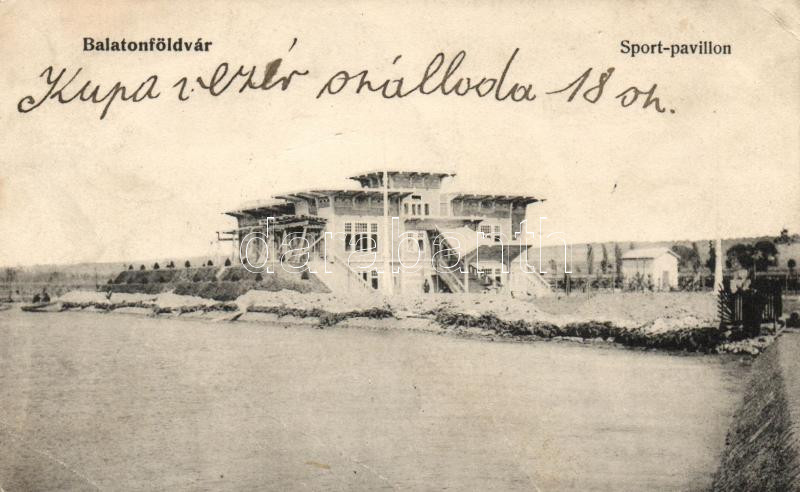 Balatonföldvár
Sport-pavillon
Kupa vezér szálloda 18 sz.
darabanth